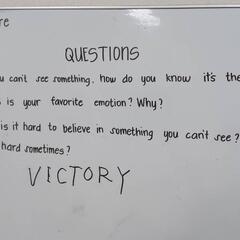 re
QUESTIONS
u can't see something, how do you know it's the
is your favorite emotion? Why?
is it hard to believe in something you can't see?
hard sometimes?
VICTORY